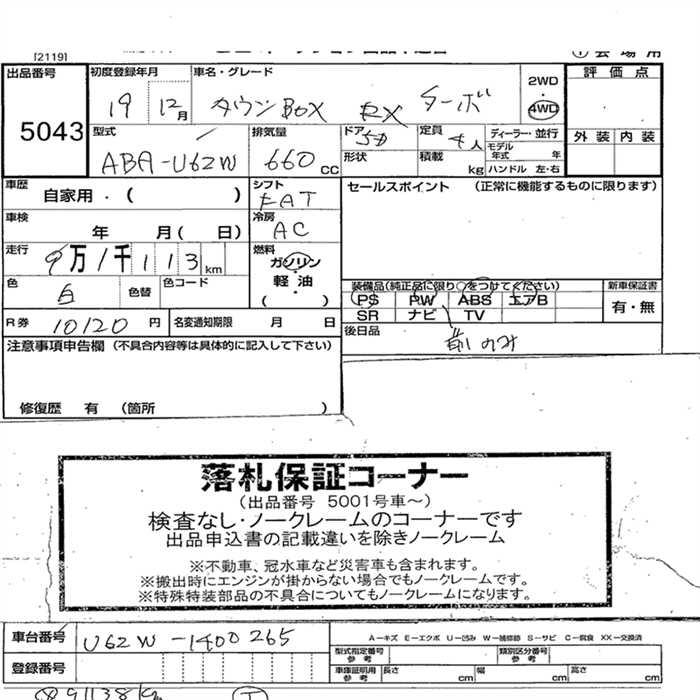 [2119]
出品番号 初度登録年月 車名・グレード 2WD 評価点
5043 19 12月 タウンBOX RX ターボ 4WD
型式 排気量 ドア 定員 ディーラー・並行 外装 内装
ABA-U62W 660cc 5D 4人 モデル年式 年
形状 積載 kg ハンドル 左・右
車歴 自家用・( ) シフト FAT セールスポイント (正常に機能するものに限ります)
車検 年 月( 日) 冷房 AC
走行 9万1千113km 燃料 ガソリン・軽油・( )
色 白 色替 色コード
装備品(純正品に限り○をつけてください) 新車保証書
PS PW ABS エアB 有・無
SR ナビ TV
R券 10120円 名変通知期限 月 日 後日品 前のみ
注意事項申告欄 (不具合内容等は具体的に記入して下さい)
修復歴 有 (箇所 )
落札保証コーナー
(出品番号 5001号車~)
検査なし・ノークレームのコーナーです
出品申込書の記載違いを除きノークレーム
※不動車、冠水車など災害車も含まれます。
※搬出時にエンジンが掛からない場合でもノークレームです。
※特殊特装部品の不具合についてもノークレームになります。
車台番号 U62W-1400265 A-キズ E-エクボ U-凹み W-補修跡 S-サビ C-腐食 XX-交換済
型式指定番号 参考 類別区分番号 参考
登録番号 車庫証明用 参考 長さ cm 幅 cm 高さ cm
91138km